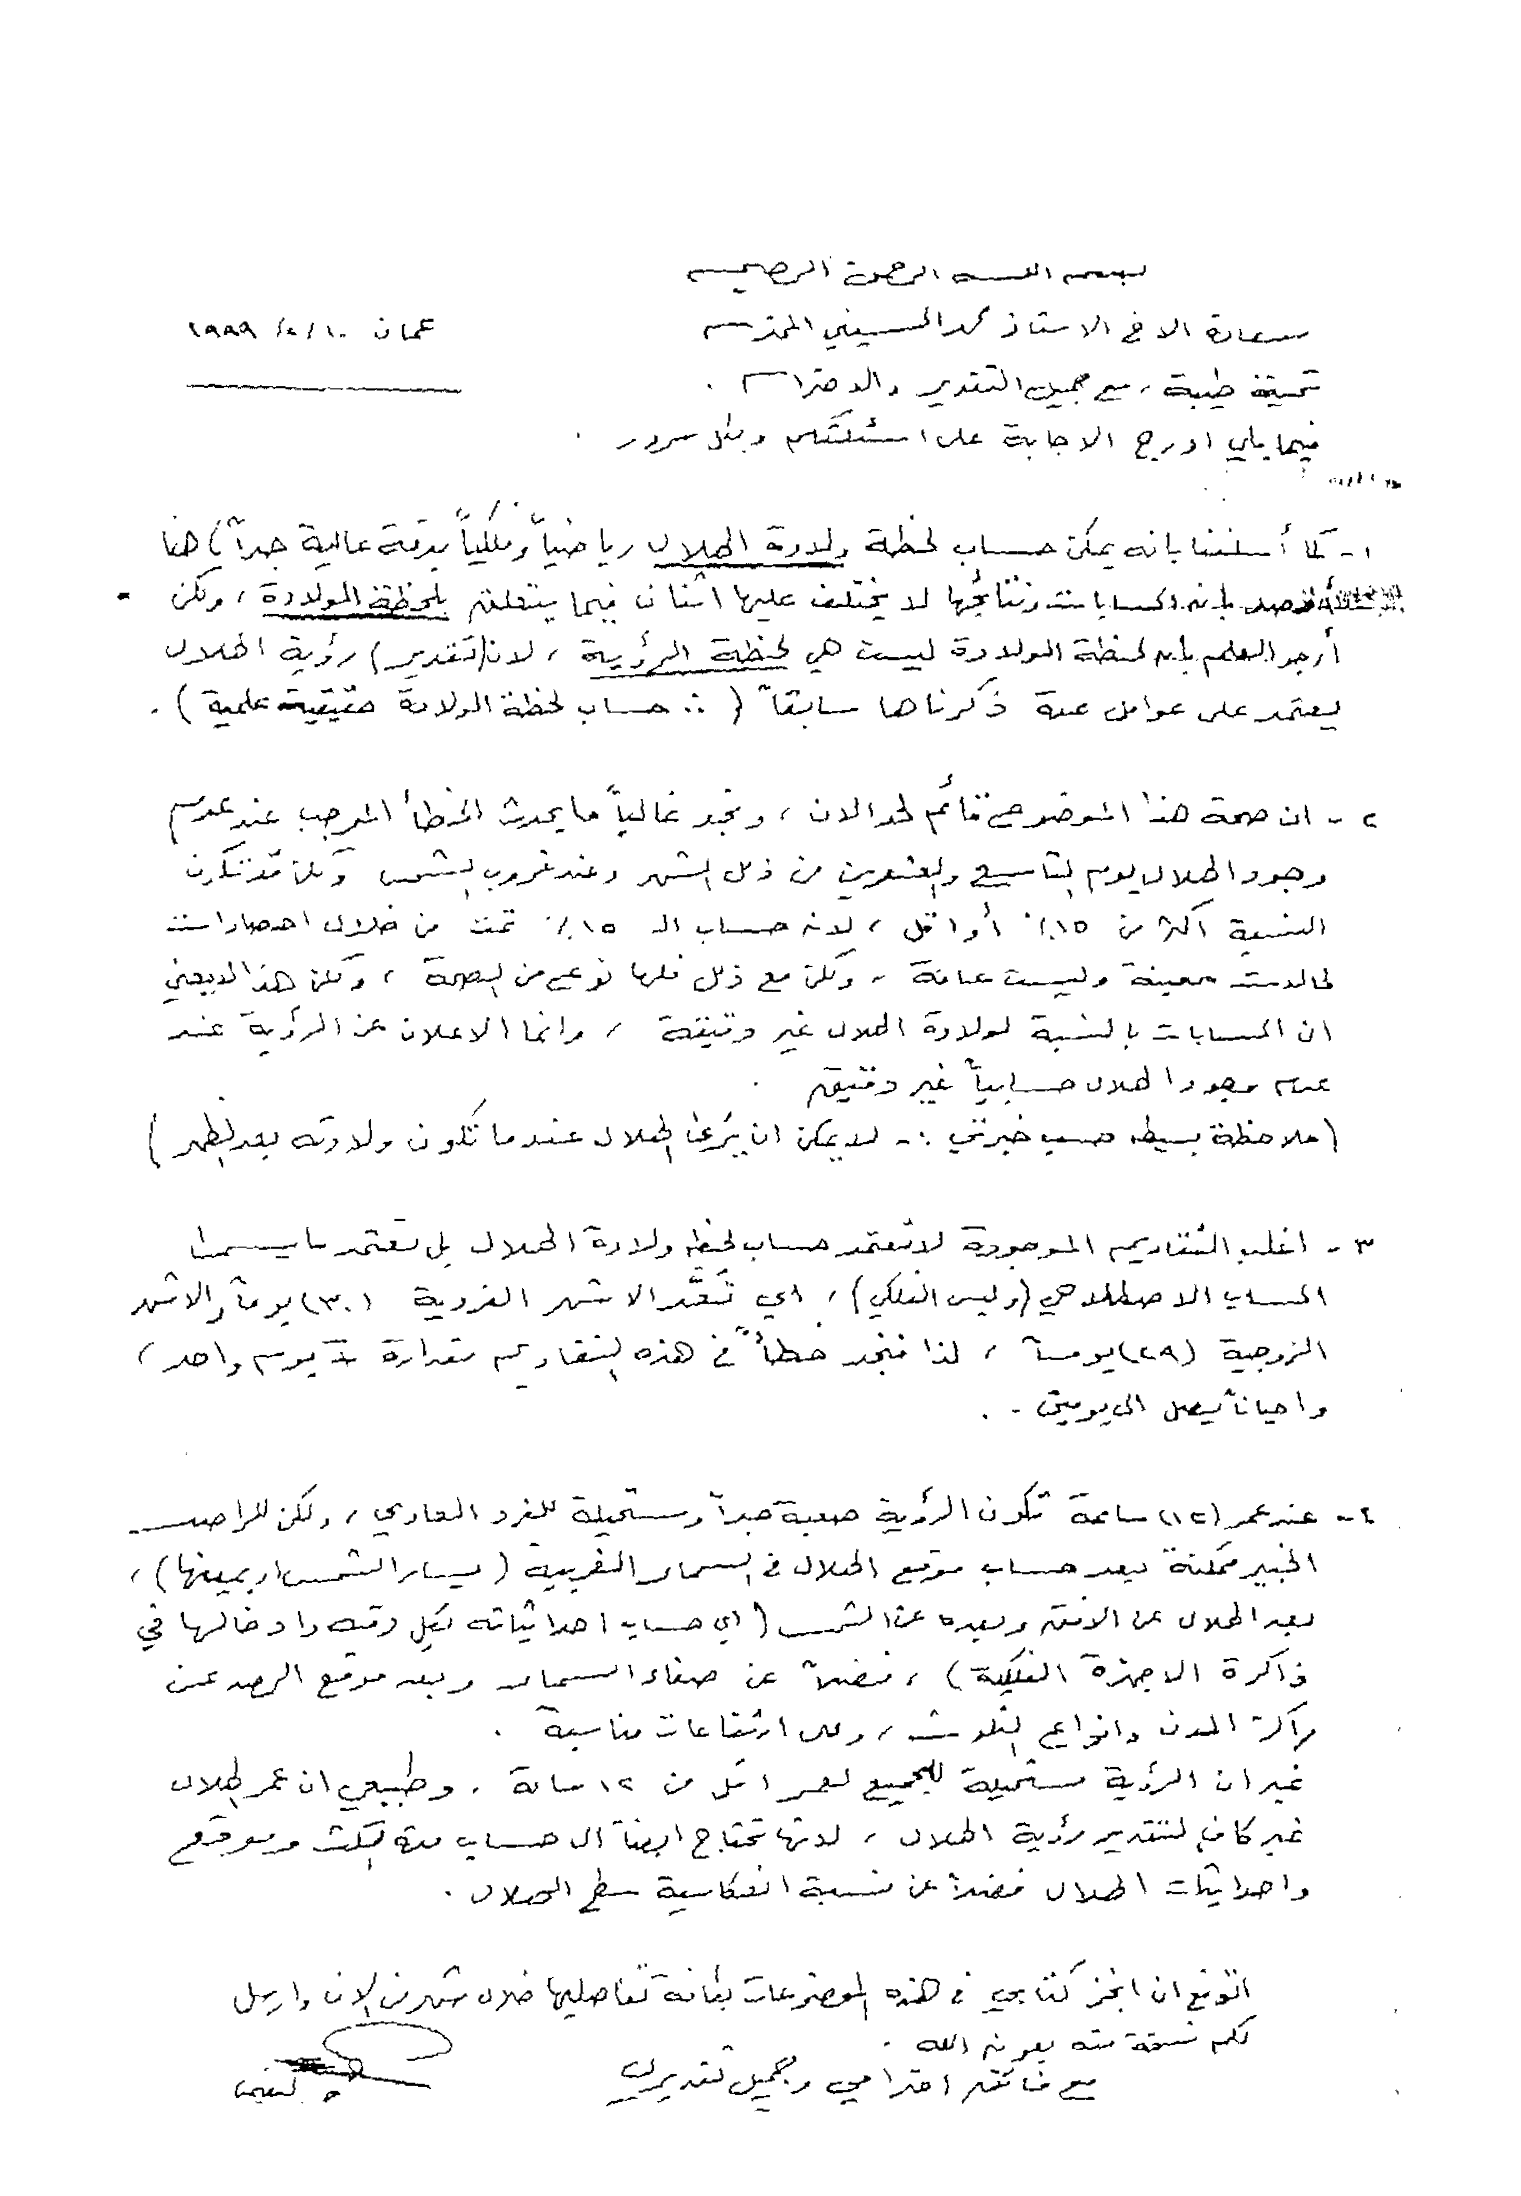 بسم الله الرحمن الرحيم
سعادة الاخ الاستاذ محمد الحسيني المحترم
عمان ١٩٩٩/٥/١٠
تحية طيبة، مع جميل التقدير والاحترام .
فيما يلي ادرج الاجابة على اسئلتكم وبكل سرور .
١- كما أسلفنا بانه يمكن حساب لحظة ولادة الهلال رياضياً وفلكياً بدقة عالية جداً، هنا
أقصد بانه الحسابات ونتائجها لا يختلف عليها اثنان فيما يتعلق بلحظة الولادة، ولكن
أرجو العلم بانه لحظة الولادة ليست هي لحظة الرؤية، لان (تقدير) رؤية الهلال
يعتمد على عوامل عدة ذكرناها سابقاً (∴ حساب لحظة الولادة حقيقية علمية) .
٢- ان صحة هذا الموضوع قائم لحد الان، ونجد غالباً ما يحدث الخطأ الموجب عند عدم
وجود الهلال يوم التاسع والعشرين من ذلك الشهر وعند غروب الشمس ولكن قد تكون
النسبة اكثر من ١٥٪ أو اقل، لانه حساب الـ ١٥٪ تمت من خلال احصاءات
لحالات معينة وليست عامة، ولكن مع ذلك فلها نوع من الصحة، ولكن هذا لا يعني
ان الحسابات بالنسبة لولادة الهلال غير دقيقة، وانما الاعلان عن الرؤية عند
عدم وجود الهلال حسابياً غير دقيق .
(ملاحظة بسيطة حسب خبرتي :- لا يمكن ان يُرى الهلال عندما تكون ولادته بعد الظهر)
٣- اغلب التقاويم الموجودة لا تعتمد حساب لحظة ولادة الهلال بل تعتمد ما يسمى
الحساب الاصطلاحي (وليس الفلكي)، اي تُعَّد الاشهر الفردية (٣٠) يوماً والاشهر
الزوجية (٢٩) يوماً، لذا فنجد خطأً في هذه التقاويم مقدارة ± يوم واحد،
واحياناً يصل الى يومين .
٤- عند عمر (١٢) ساعة تكون الرؤية صعبة جداً ومستحيلة للفرد العادي، ولكن للراصد
الخبير ممكنة بعد حساب موقع الهلال في السماء الغربية (يسار الشمس او يمينها)،
بعد الهلال عن الافق وبعده عن الشمس (اي حساب احداثياته بكل دقة وادخالها في
ذاكرة الاجهزة الفلكية)، فضلاً عن صفاء السماء وبعد موقع الرصد عن
مراكز المدن وانواع التلوث، وعلى ارتفاعات مناسبة .
غير ان الرؤية مستحيلة للجميع لعمر اقل من ١٢ ساعة . وطبيعي ان عمر الهلال
غير كافٍ لتقدير رؤية الهلال، لانها تحتاج ايضاً الى حساب مدة المكث وموقع
واحداثيات الهلال فضلاً عن نسبة انعكاسية سطح الهلال .
اتوقع ان انجز كتابي في هذه الموضوعات بكافة تفاصيلها خلال شهر من الان وارسل
لكم نسخة منه بعون الله .
مع فائق احترامي وجميل تقديري